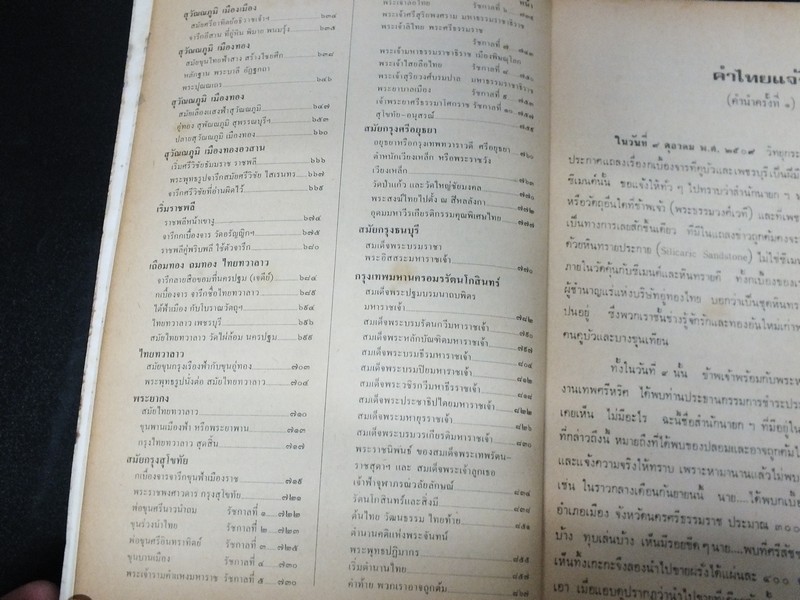 สุวัณณภูมิ เมืองเมือง
สมัยศรีอาทิตย์อธิราชเจ้าฯ ๖๓๔
จารึกอีสาน ที่ภูพิน พิมาย พนมรุ้ง ๖๓๕
สุวัณณภูมิ เมืองทอง
สมัยขุนไทยฟ้าสาง สร้างโชฎึก ๖๓๘
หลักฐาน พระบาลี อัฏฐกถา
พระปุณณเถา ๖๔๖
สุวัณณภูมิ เมืองทอง
สมัยเลืองแสงฟ้าสุวัณณภูมิ ๖๔๗
อู่ทอง สุพัณณภูมิ สุพรรณบุรีฯ ๖๕๓
ปลายสุวัณณภูมิ เมืองทอง ๖๖๐
สุวัณณภูมิ เมืองทองอวสาน
เริ่มศรีวิชัยธัมมราช ราชพลี ๖๖๖
พระพุทธรูปจารึกสมัยศรีวิชัย ไสเรนทร ๖๖๗
จารึกศรีวิชัยที่อ่านผิดไว้ ๖๖๕
เริ่มราชพลี
ราชพลีหน้าเขางู ๖๗๔
จารึกกเบื้องจาร วัดอรัญญิกฯ ๖๗๕
ราชพลีคู่พริบพลี ใช้ตัวจารึก ๖๘๐
เถือมทอง ถมทอง ไทยทวาลาว
จารึกลายสือขอมที่นครปฐม (เจดีย์) ๖๘๔
กเบื้องจาร จารึกชื่อไทยทวาลาว ๖๘๕
ใต้ฟ้าเมือง กับโบราณวัตถุฯ ๖๙๔
ไทยทวาลาว เพชรบุรี ๖๙๖
สมัยไทยทวาลาว วัดไผ่ล้อม นครปฐม ๖๙๙
ไทยทวาลาว
สมัยขุนกรุงเรืองฟ้ากับขุนอู่ทอง ๗๐๓
พระพุทธรูปนั่งต่อ สมัยไทยทวาลาว ๗๐๔
พระยากง
สมัยไทยทวาลาว ๗๑๐
ขุนพานเมืองฟ้า หรือพระยาพาน ๗๑๓
กรุงไทยทวาลาว สุดสิ้น ๗๑๗
สมัยกรุงสุโขทัย
กเบื้องจารจารึกขุนฟ้าเมืองราช ๗๑๕
พระราชพงสาวดาร กรุงสุโขทัย ๗๒๑
พ่อขุนศรีนาวนำถม รัชกาลที่ ๑ ๗๒๒
ขุนร่วงนำไทย รัชกาลที่ ๒ ๗๒๓
พ่อขุนศรีอินทราทิตย์ รัชกาลที่ ๓ ๗๒๕
ขุนบานเมือง รัชกาลที่ ๔ ๗๓๐
พระเจ้ารามคำแหงมหาราช รัชกาลที่ ๕ ๗๓๐
พระเจ้าศรีสุริยพงศราม มหาธรรมราชาธิราช
พระเจ้าลิไทย พระศรีธรรมราช
รัชกาลที่ ๗ ๗๑๓
พระเจ้ามหาธรรมราชาธิราช เมืองพิษณุโลก
พระเจ้าไสยลือไทย รัชกาลที่ ๘ ๗๕๐
พระเจ้าสุริยวงศ์บรมปาย มหาธรรมราชาธิราช
พระยาบาลเมือง รัชกาลที่ ๙ ๗๕๓
เจ้าพระยาศรีธรรมาโศกราช รัชกาลที่ ๑๐ ๗๕๗
สุโขทัย-อนุสรณ์ ๗๕๙
สมัยกรุงศรีอยุธยา
อยุธยาหรือกรุงเทพทวาราวดี ศรีอยุธยา ๗๖๐
ตำหนักเวียงเหล็ก หรือพระราชวัง
เวียงเหล็ก ๗๖๓
วัดป่าแก้ว และวัดใหญ่ชัยมงคล ๗๗๐
พระสงฆ์ไทยไปตั้ง ณ สีหลลังกา ๗๗๒
อุดมมหาวีรเกียรติกรรมคุณพิเศษไทย ๗๗๗
สมัยกรุงธนบุรี
สมเด็จพระบรมราชา
พระอิสสรมหาราชเจ้า ๗๗๐
กรุงเทพมหานครอมรรัตนโกสินทร์
สมเด็จพระปฐมบรมนาถบพิตร
มหาราชเจ้า ๗๘๒
สมเด็จพระบรมรัตนกวีมหาราชเจ้า ๗๙๐
สมเด็จพระหลักบัณฑิตมหาราชเจ้า ๗๙๗
สมเด็จพระบรมธีรมหาราชเจ้า ๘๐๔
สมเด็จพระบรมปิยมหาราชเจ้า ๘๑๒
สมเด็จพระวชิรกวีมหาธีรราชเจ้า ๘๑๘
สมเด็จพระประชาธิปไตยมหาราชเจ้า ๘๒๒
สมเด็จพระมหายุธราชเจ้า ๘๒๖
สมเด็จพระบรมวรเกียรติมหาราชเจ้า ๘๓๐
พระราชนิพันธ์ ของสมเด็จพระเทพรัตน-
ราชสุดาฯ และ สมเด็จพระเจ้าลูกเธอ
เจ้าฟ้าจุฬาภรณ์วลัยลักษณ์ ๘๓๔
รัตนโกสินทร์และสิ่งมี ๘๓๙
ต้นไทย วัฒนธรรม ไทยท้าย ๘๕๑
ตำนานคดีแห่งพระจันทน์
พระพุทธปฏิมากร ๘๕๕
เริ่มตำนานไทย ๘๕๗
คำท้าย พวกเราอาจถูกต้ม ๘๖๗
คำไทยแจ้
(คำนำครั้งที่ ๑)
ในวันที่ ๙ ตุลาคม พ.ศ. ๒๕๐๙ วิทยุกระ
ประกาศแถลงเรื่องกเบื้องจารที่คูบัวและเพชรบุรีเป็นผีมื
ซีเมนต์นั้น ขอแจ้งให้ทั่ว ๆ ไปทราบว่าสำนักนายก ฯ
หรือวัตถุอื่นใดที่ข้าพเจ้า (พระธรรมวงศ์เวที) และที่เพช
เป็นทางการเลยสักชิ้นเดียว ที่มีในแถลงข่าวถูกต้มคงจะ
ด้วยหินทรายประกาย (Silicaric Sandstone) ไม่ใช่ซีเม
ภายในวัดคุ้นกับซีเมนต์และหินทรายดี ทั้งกเบื้องของเร
ผู้ชำนาญแร่แห่งบริษัทอูทองไทย บอกว่าเป็นชุดหินทร
ปนอยู่ ซึ่งพวกเราชั้นช่างรู้จักรักและทองยันใหม่เก่าห
คนคูบัวและบางขุนเทียน
ทั้งในวันที่ ๙ นั้น ข้าพเจ้าพร้อมกับพระห
งานเทพศรีหริศ ได้พบท่านประธานกรรมการชำระประ
เคยเห็น ไม่มีอะไร ฉะนั้นชื่อสำนักนายก ฯ ที่มีอยู่ใน
ที่กล่าวถึงนั้น หมายถึงที่ได้พบของปลอมและอาจถูกต้มใ
และแจ้งความจริงให้ทราบ เพราะหามานานแล้วไม่พบ
เช่น ในราวกลางเดือนกันยายนนี้ นาย....ได้พบกเบื้
อำเภอเมือง จังหวัดนครศรีธรรมราช ประมาณ ๓๐๐
บ้าง ทุบเล่นบ้าง เห็นมีรอยขีด ๆ นาย....พบที่ศรีลัชฯ
เห็นทิ้งเกะกะจึงลองนำไปขายฝรั่งได้แผ่นละ ๔๐๐
เอา เมื่อแอบดูปรากฏว่านำไปขายที่